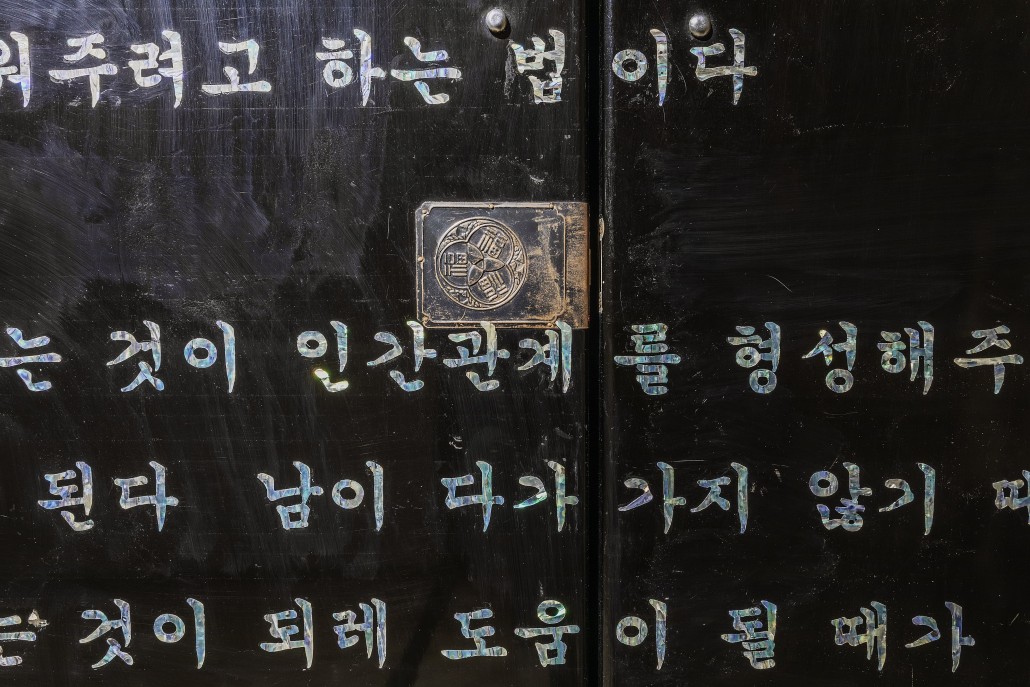 워주려고 하는 법이다
는 것이 인간관계를 형성해주
된다 남이 다가가지 않기 때
는 것이 되레 도움이 될 때가